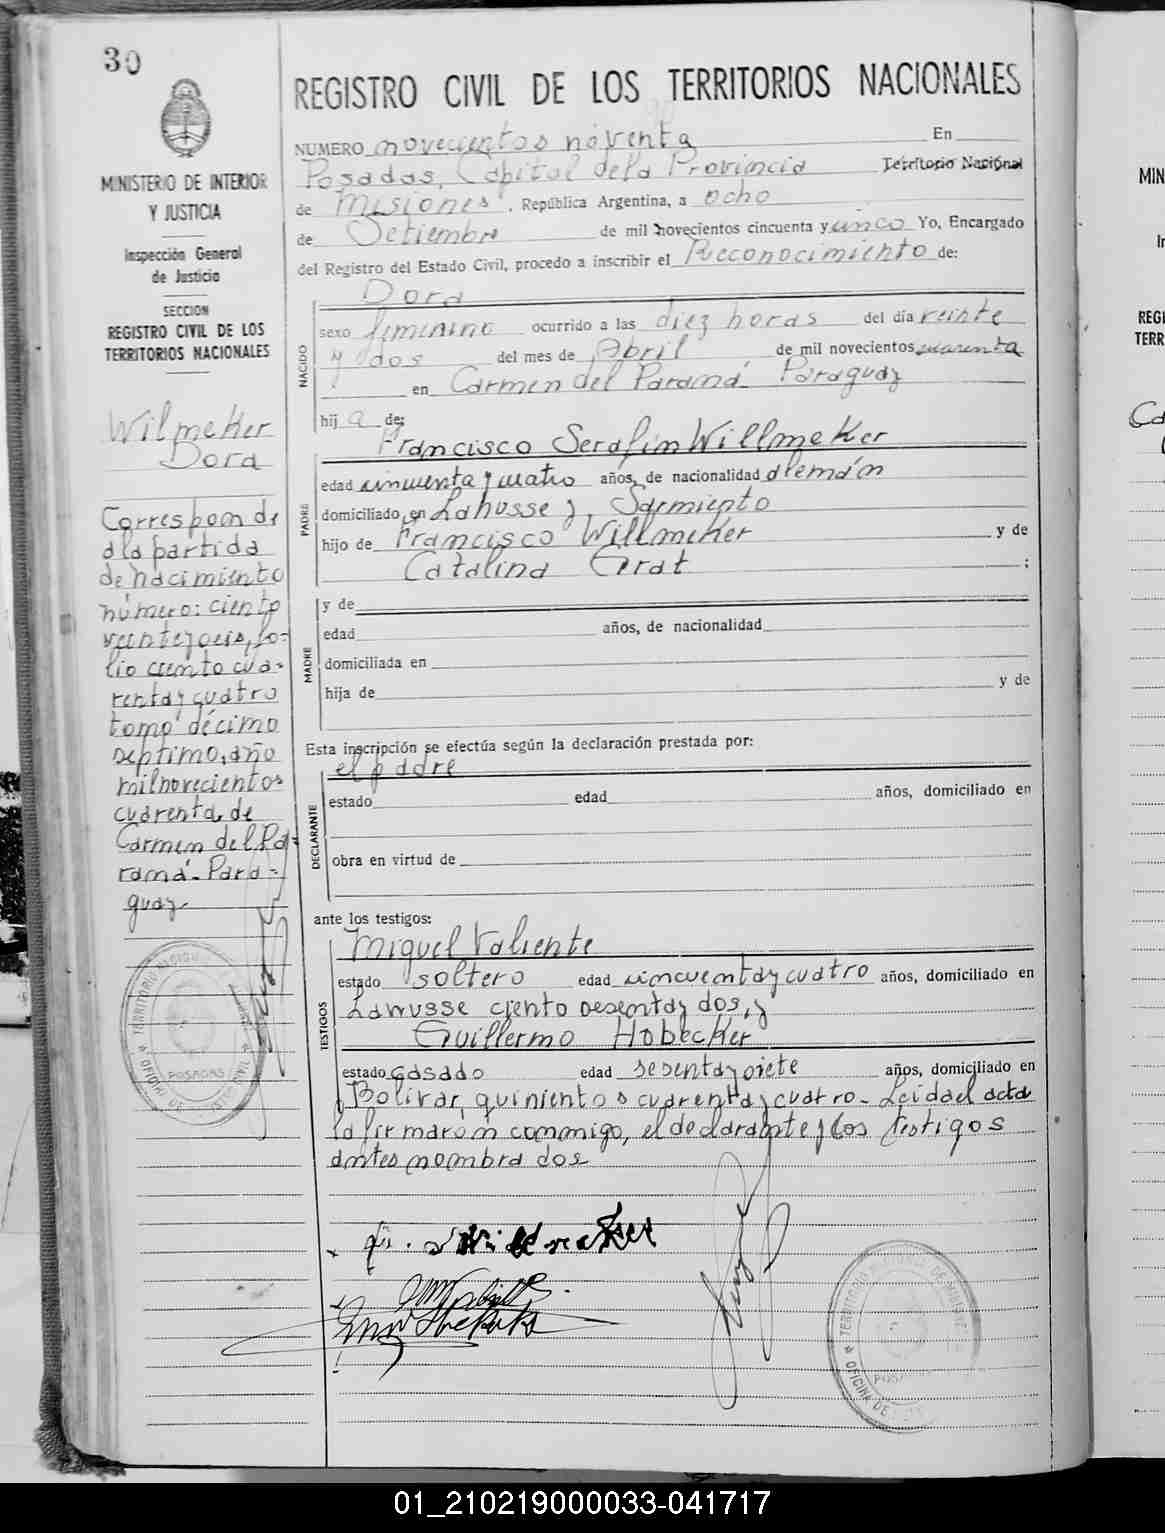 30
REGISTRO CIVIL DE LOS TERRITORIOS NACIONALES
NUMERO novecientos noventa En
Posadas, Capital de la Provincia Territorio Nacional
de Misiones, República Argentina, a ocho
de Setiembre de mil novecientos cincuenta y cinco Yo, Encargado
del Registro del Estado Civil, procedo a inscribir el Reconocimiento de:
Dora
NACIDO
sexo femenino ocurrido a las diez horas del día veinte
y dos del mes de Abril de mil novecientos cuarenta
en Carmen del Paraná Paraguay
hij a de:
Francisco Serafin Willmeker
PADRE
edad cincuenta y cuatro años, de nacionalidad alemán
domiciliado en Lanusse y Sarmiento
hijo de Francisco Willmeker y de
Catalina Grat ;
MADRE
y de
edad años, de nacionalidad
domiciliada en
hija de y de
Esta inscripción se efectúa según la declaración prestada por:
el padre
DECLARANTE
estado edad años, domiciliado en
obra en virtud de
ante los testigos:
Miguel Valiente
TESTIGOS
estado soltero edad cincuenta y cuatro años, domiciliado en
Lanusse ciento sesenta y dos, y
Guillermo Hobecker
estado casado edad sesenta y siete años, domiciliado en
Bolivar, quinientos cuarenta y cuatro - Leida el acta
la firmaron conmigo, el declarante y los testigos
antes nombrados
MINISTERIO DE INTERIOR
Y JUSTICIA
Inspección General
de Justicia
SECCION
REGISTRO CIVIL DE LOS
TERRITORIOS NACIONALES
Wilmeker
Dora
Corresponde
a la partida
de nacimiento
número: ciento
veinte y seis, fo-
lio ciento cua-
renta y cuatro
tomo décimo
septimo, año
mil novecientos
cuarenta, de
Carmen del Pa-
raná - Para-
guay
POSADAS
01_210219000033-041717